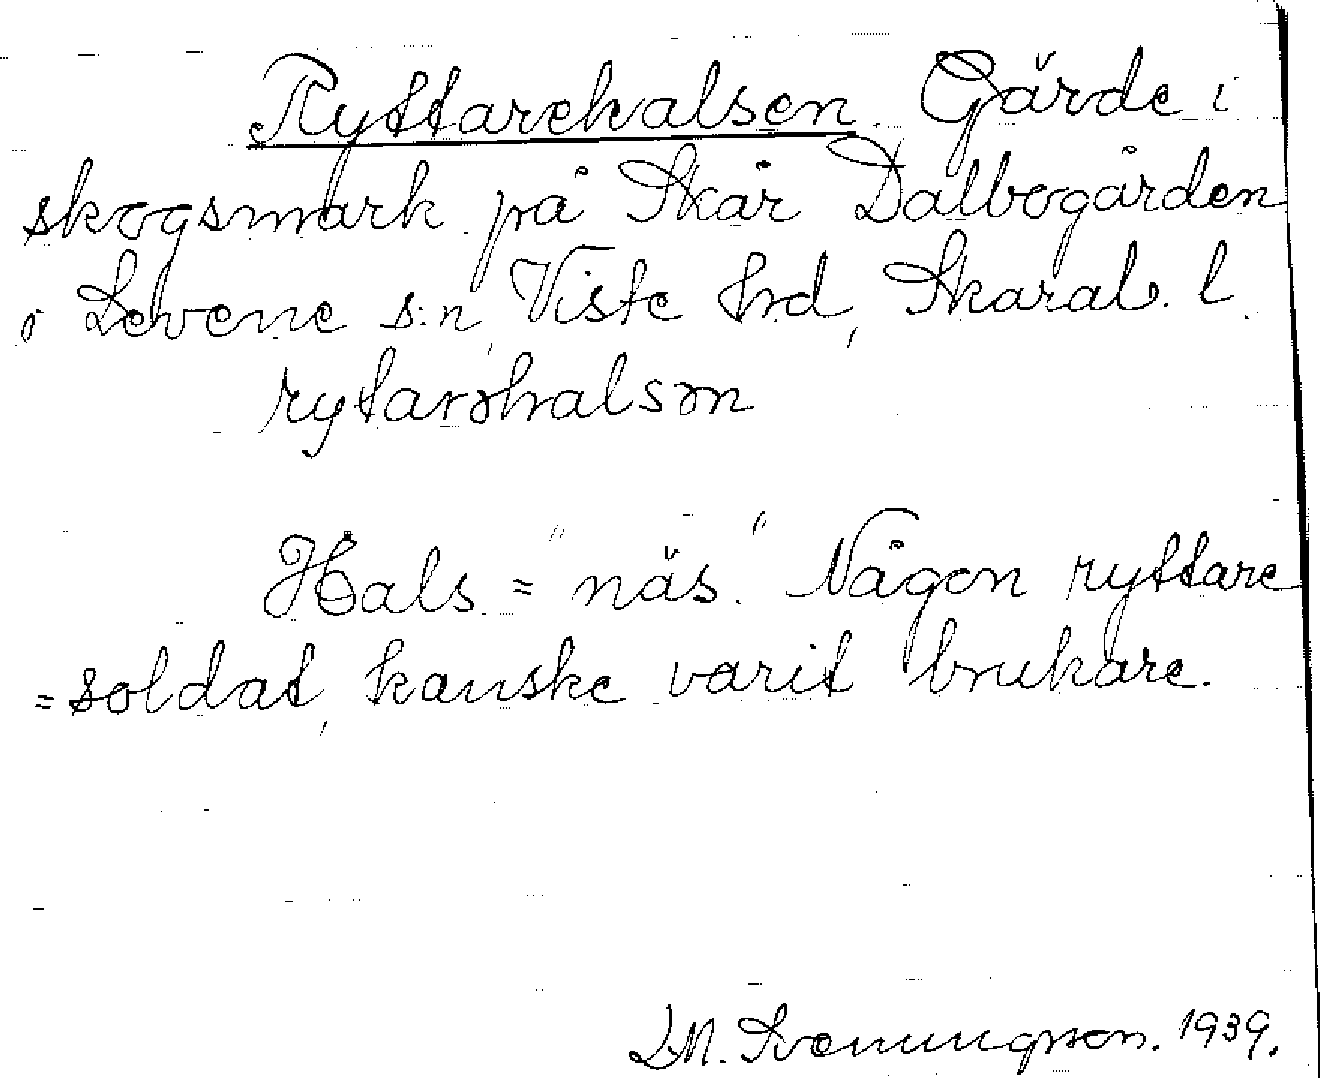 Ryttarehalsen. Gärde i
skogsmark på Skår Dalbogården
i Levene s:n, Viste hrd, Skarab. l.
rytarəhalsən
Hals = "näs". Någon ryttare
=soldat, kanske varit brukare.
L M. Svenungsson. 1939.